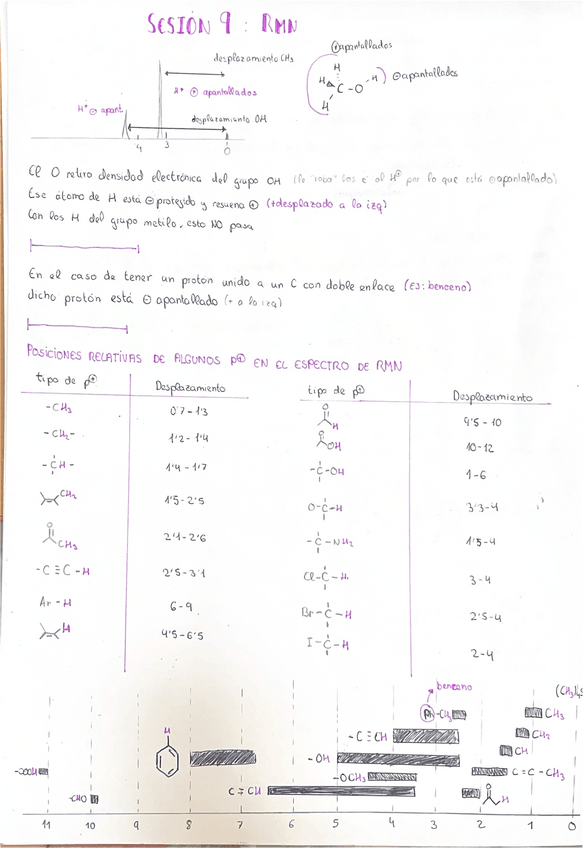 SESIÓN 9 : RMN
⊕apantallados
desplazamiento CH₃
H⁺ ⊕ apantallados
H⁺ ⊖ apant.
desplazamiento OH
4 3 0
H
H C - O - H
H
⊖apantallados
El O retira densidad electrónica del grupo OH (le "roba" los e⁻ al H⊕ por lo que está ⊖apantallado)
Ese átomo de H está ⊖protegido y resuena ⊕ (+desplazado a la izq)
Con los H del grupo metilo, esto NO pasa
En el caso de tener un proton unido a un C con doble enlace (EJ: benceno)
dicho protón está ⊖ apantallado (+ a la izq)
POSICIONES RELATIVAS DE ALGUNOS p⊕ EN EL ESPECTRO DE RMN
tipo de p⊕ Desplazamiento
-CH₃ 0'7 - 1'3
-CH₂- 1'2 - 1'4
-CH- 1'4 - 1'7
CH₂ 1'5 - 2'5
O CH₃ 2'1 - 2'6
-C≡C-H 2'5 - 3'1
Ar-H 6 - 9
H 4'5 - 6'5
tipo de p⊕ Desplazamiento
O H 9'5 - 10
O OH 10 - 12
-C-OH 1 - 6
O-C-H 3'3 - 4
-C-NH₂ 1'5 - 4
Cl-C-H 3 - 4
Br-C-H 2'5 - 4
I-C-H 2 - 4
benceno
(CH₃)₄S
Ph-CH₃
CH₃
H
-C≡CH
CH₂
CH
-OH
-COOH
-OCH₃
C=C-CH₃
-CHO
C=CH
H
11 10 9 8 7 6 5 4 3 2 1 0